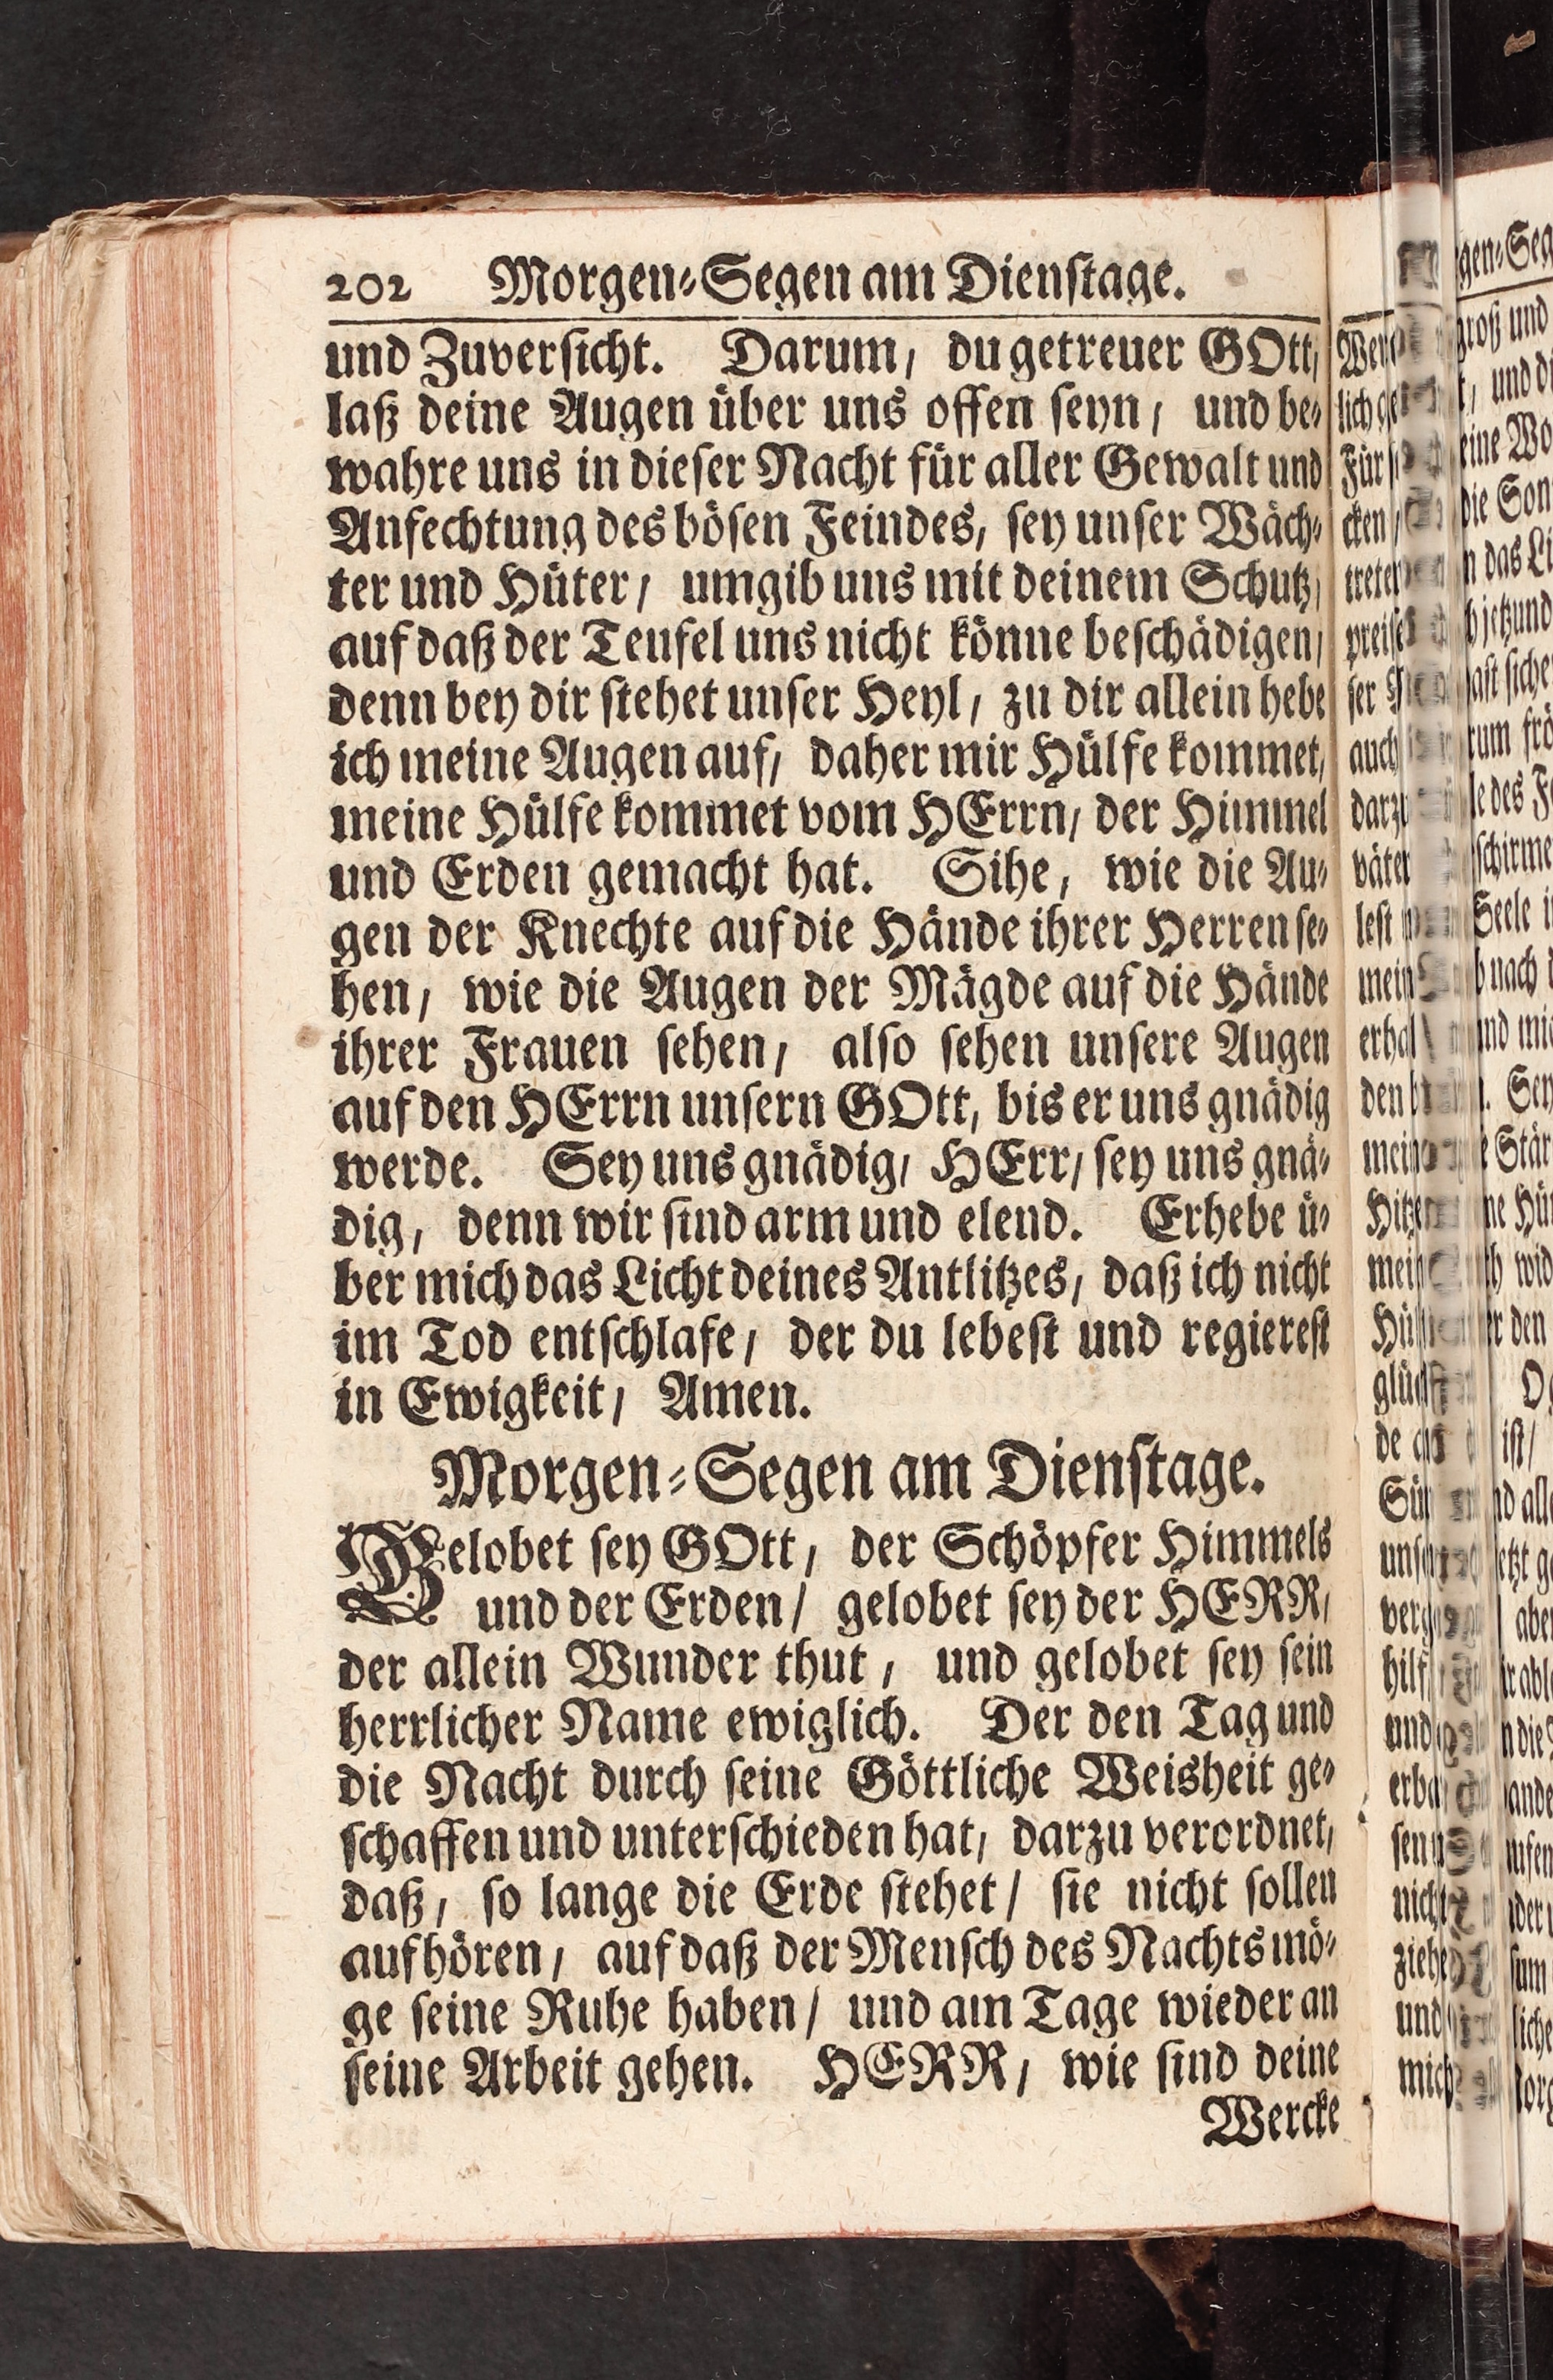 202 Morgen-Segen am Dienstage.
und Zuversicht. Darum, du getreuer GOtt,
laß deine Augen über uns offen seyn, und be-
wahre uns in dieser Nacht für aller Gewalt und
Anfechtung des bösen Feindes, sey unser Wäch-
ter und Hüter, umgib uns mit deinem Schutz,
auf daß der Teufel uns nicht könne beschädigen,
denn bey dir stehet unser Heyl, zu dir allein hebe
ich meine Augen auf, daher mir Hülfe kommet,
meine Hülfe kommet vom HErrn, der Himmel
und Erden gemacht hat. Sihe, wie die Au-
gen der Knechte auf die Hände ihrer Herren se-
hen, wie die Augen der Mägde auf die Hände
ihrer Frauen sehen, also sehen unsere Augen
auf den HErrn unsern GOtt, bis er uns gnädig
werde. Sey uns gnädig, HErr, sey uns gnä-
dig, denn wir sind arm und elend. Erhebe ü-
ber mich das Licht deines Antlitzes, daß ich nicht
im Tod entschlafe, der du lebest und regierest
in Ewigkeit, Amen.
Morgen-Segen am Dienstage.
Gelobet sey GOtt, der Schöpfer Himmels
und der Erden / gelobet sey der HERR,
der allein Wunder thut, und gelobet sey sein
herrlicher Name ewiglich. Der den Tag und
die Nacht durch seine Göttliche Weisheit ge-
schaffen und unterschieden hat, darzu verordnet,
daß, so lange die Erde stehet / sie nicht sollen
aufhören, auf daß der Mensch des Nachts mö-
ge seine Ruhe haben / und am Tage wieder an
seine Arbeit gehen. HERR, wie sind deine
Wercke